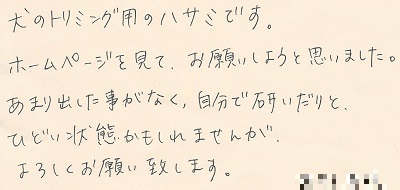 犬のトリミング用のハサミです。
ホームページを見て、お願いしようと思いました。
あまり出した事がなく、自分で研いだりと、
ひどい状態かもしれませんが、
よろしくお願い致します。